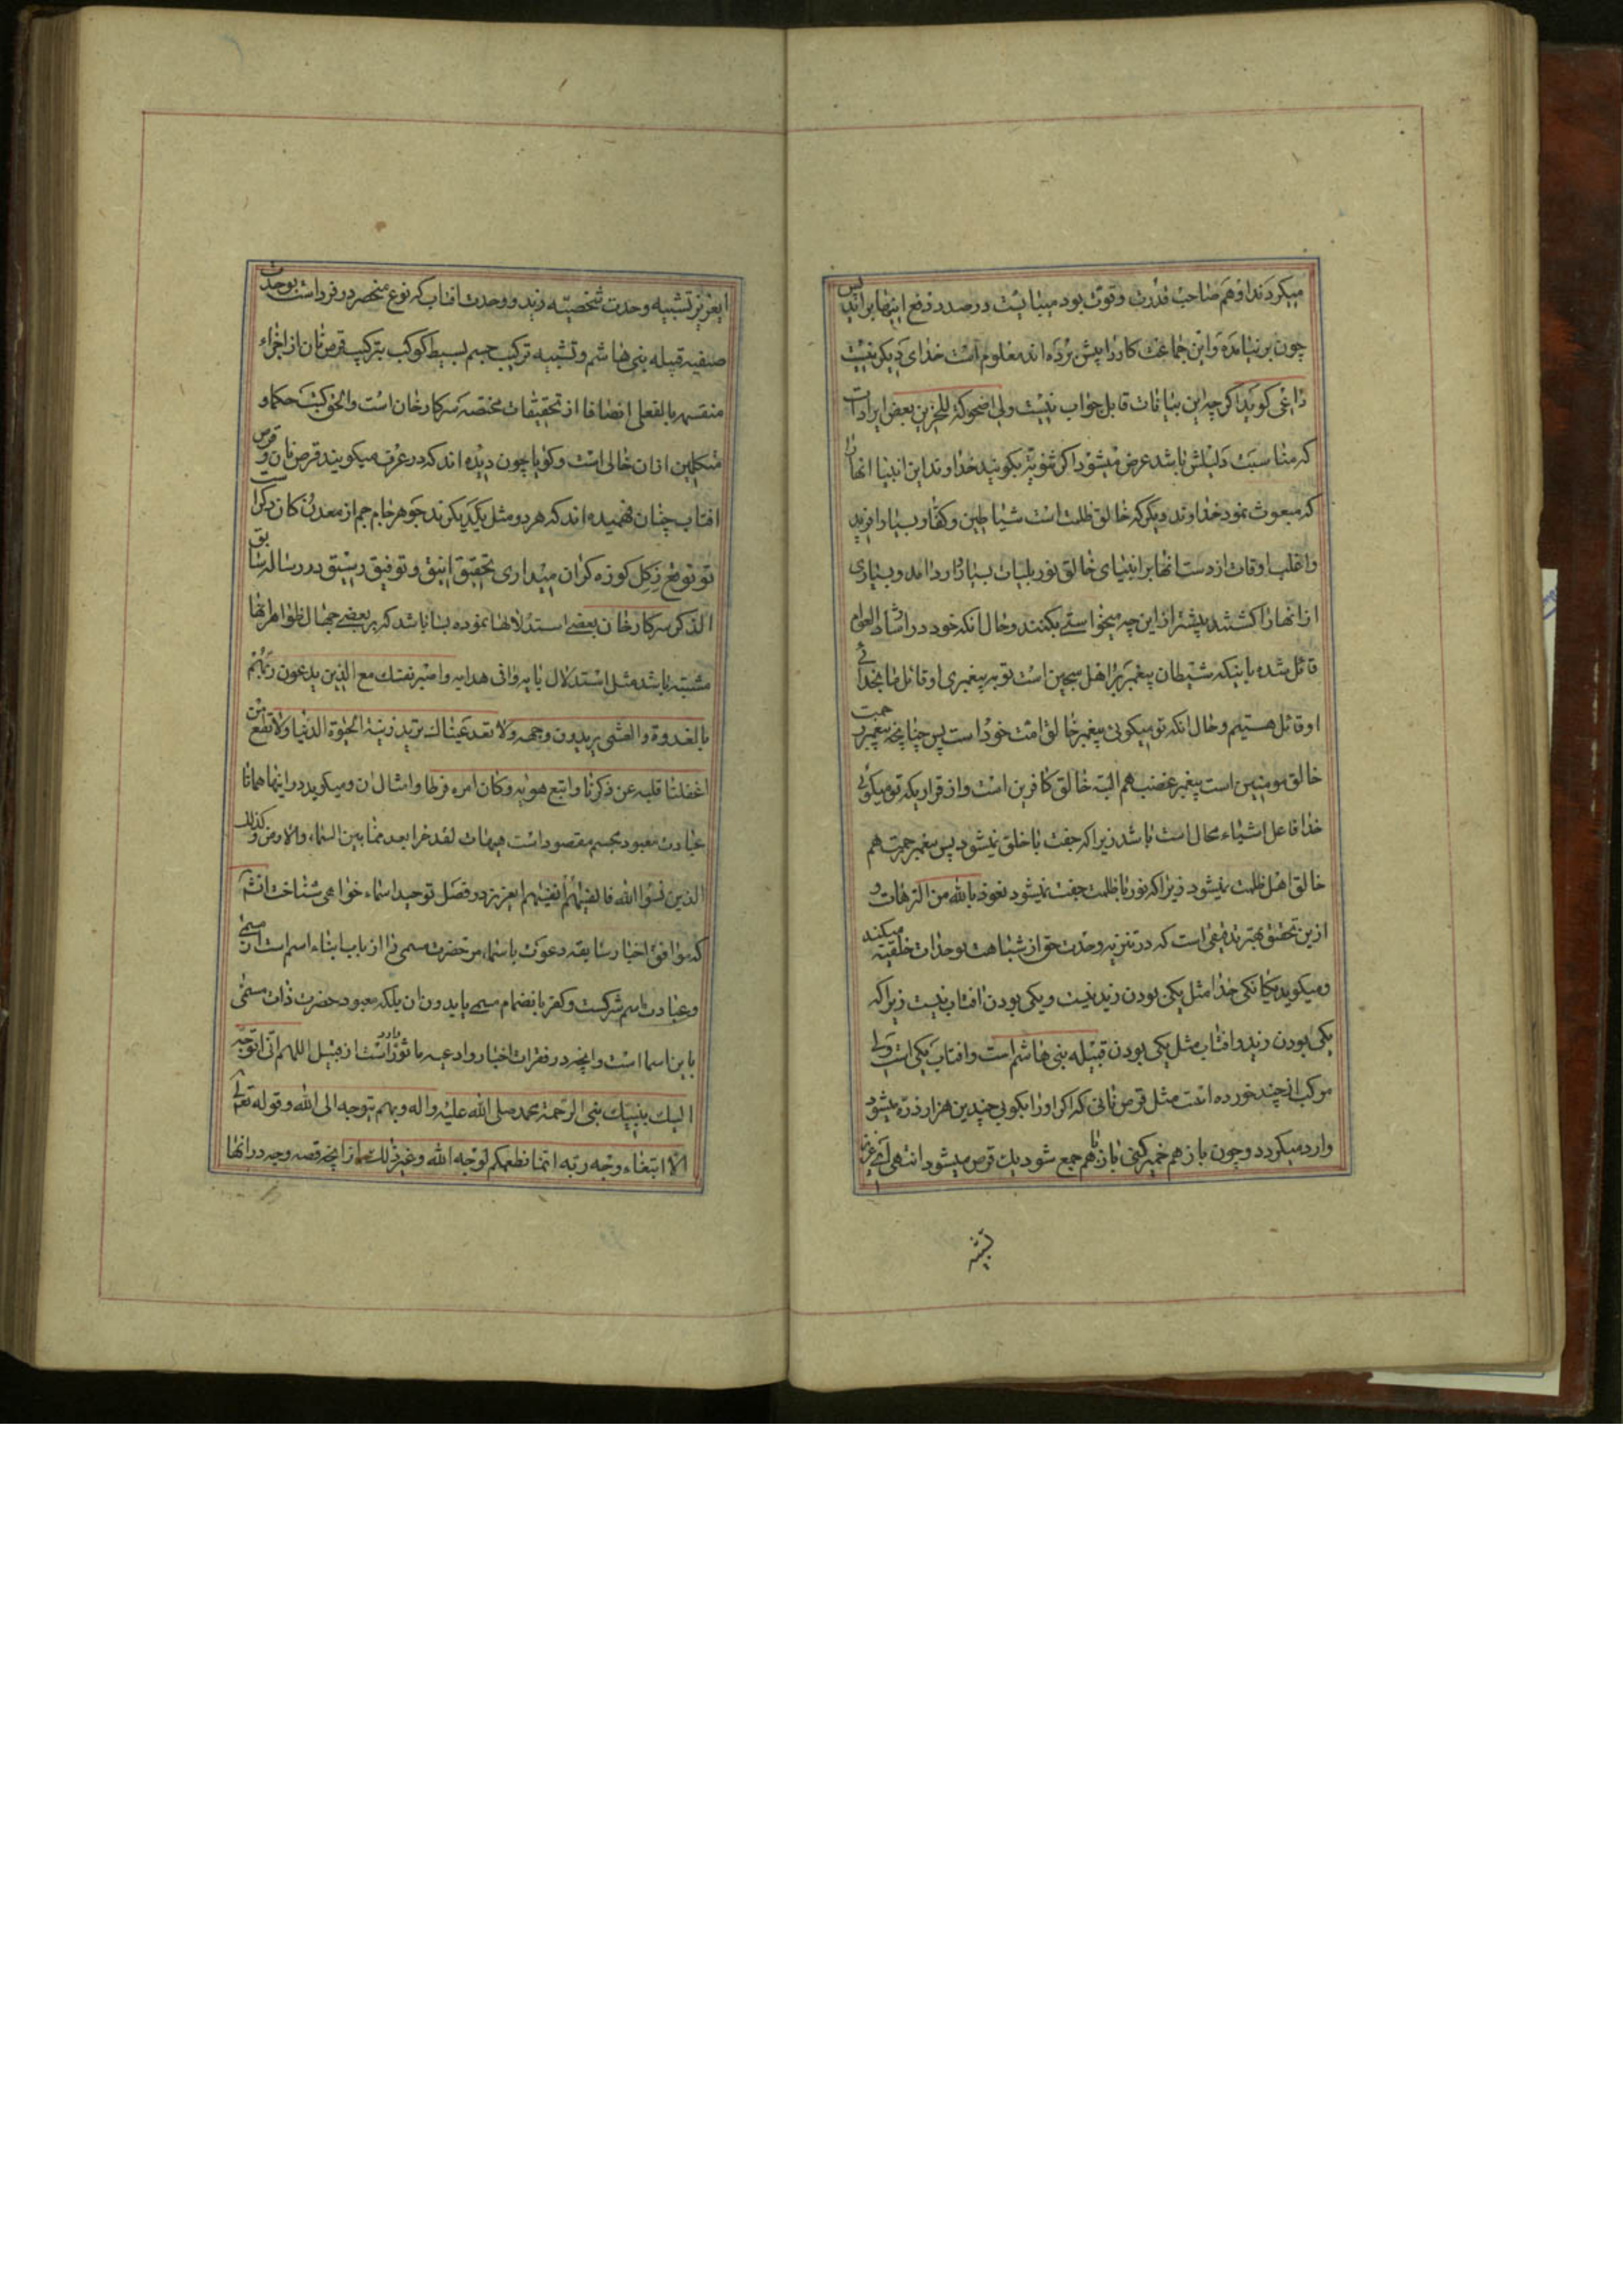 میکردند او هم صاحب قدرت و قوت بود میبایست در صدد دفع اینها براید پس
چون بر نیامده و این جماعت کار را پیش برده اند معلوم است خدای دیکر نیست
داعی کوید اکرچه این بیانات قابل جواب نیست ولی اضحوکة للحزین بعض ایرادات
که مناسبت دلیلش باشد عرض میشود اکر ثنویة بکویند خداوند این انبیا انهارا
که مبعوث نمود خداوند دیکر که خالق ظلمت است شیاطین و کفار بسیار افرید
و اغلب اوقات از دست انها بر انبیای خالق نور بلیات بسیار وارد امد و بسیاری
از انها را کشتند بیشتر از این چه میخواستی بکنند و حال انکه خود در ارشاد العوام
قائل شده باینکه شیطان پیغمبر اهل سجین است تو به پیغمبری او قائل ما بخدائی
او قائل هستیم و حال انکه تو میکوئی پیغمبر خالق امت خود است پس چنانچه پیغمبر رحمت
خالق مومنین است پیغمبر غضب هم البته خالق کافرین است و از قراریکه تو میکوئی
خدا فاعل اشیاء محال است باشد زیرا که جفت با خلق نمیشود پس پیغمبر رحمت هم
خالق اهل ظلمت نمیشود زیرا که نور با ظلمت جفت نمیشود نعوذ بالله من الترهات و
ازین تحقیق بهتر تدقیقی است که در تنزیه وحدت حق از شباهت بوحدات خلقیه میکند
و میکوید یکانکی خدا مثل یکی بودن زید نیست و یکی بودن افتاب نیست زیرا که
یکی بودن زید و افتاب مثل یکی بودن قبیله بنی هاشم است و افتاب یکی است ولی
مرکب از چند خورده است مثل قرص نانی که اکر او را بکوبی چندین هزار ذره میشود
وارد میکردد و چون باز هم خمیر کنی باز با هم جمع شود یک قرص میشود انتهی
ایعزیز تشبیه وحدت شخصیه زید و وحدت افتاب که نوع منحصر در فرد است بوحدت
صنفیه قبیله بنی هاشم و تشبیه ترکیب جسم بسیط کوکب بترکیب قرص نان از اجزاء
منقسمه بالفعل انصافا از تحقیقات مختصه سرکار خان است والحق کتب حکماء و
متکلمین از ان خالی است و کویا چون دیده اند که در عرف میکویند قرص نان و قرص
افتاب چنان فهمیده اند که هر دو مثل یکدیکرند جوهر جام جم از معدن کان دکر است
تو توقع ز کل کوزه کران میداری تحقیق انیق و توفیق رشیق در رساله سابق
الذکر سرکار خان بعضی استدلالها نموده بسا باشد که بر بعضی جهال ظواهر انها
مشتبه باشد مثل استدلال بایه وافی هدایه واصبر نفسک مع الذین یدعون ربهم
بالغدوة والعشی یریدون وجهه ولا تعد عیناک ترید زینة الحیوة الدنیا ولا تطع من
اغفلنا قلبه عن ذکرنا واتبع هویه وکان امره فرطا و امثال ان و میکوید در اینها همانا
عبادت معبود مجسم مقصود است هیهات لقد خرا بعد مما بین السماء والارض وکذلک
الذین نسوا الله فانسیهم انفسهم ایعزیز در فصل توحید اسماء خواهی شناخت انشآ
که موافق اخبار سابقه دعوت باسماء مر حضرت مسمی را از باب ایتاء اسم است ان مسمی
و عبادت اسم شرکست و کفر بانضمام مسمی یا بدون ان بلکه معبود حضرت ذات مسمی
باین اسما است و انچه در فقرات اخبار و ادعیه ماثوره وارد است از قبیل اللهم انی اتوجه
الیک بنبیک نبی الرحمة محمد صلی الله علیه واله و بهم یتوجه الی الله و قوله تعالی
الا ابتغاء وجه ربه انما نطعمکم لوجه الله و غیر ذلک از انچه قصه وجه در انها
تشبیه